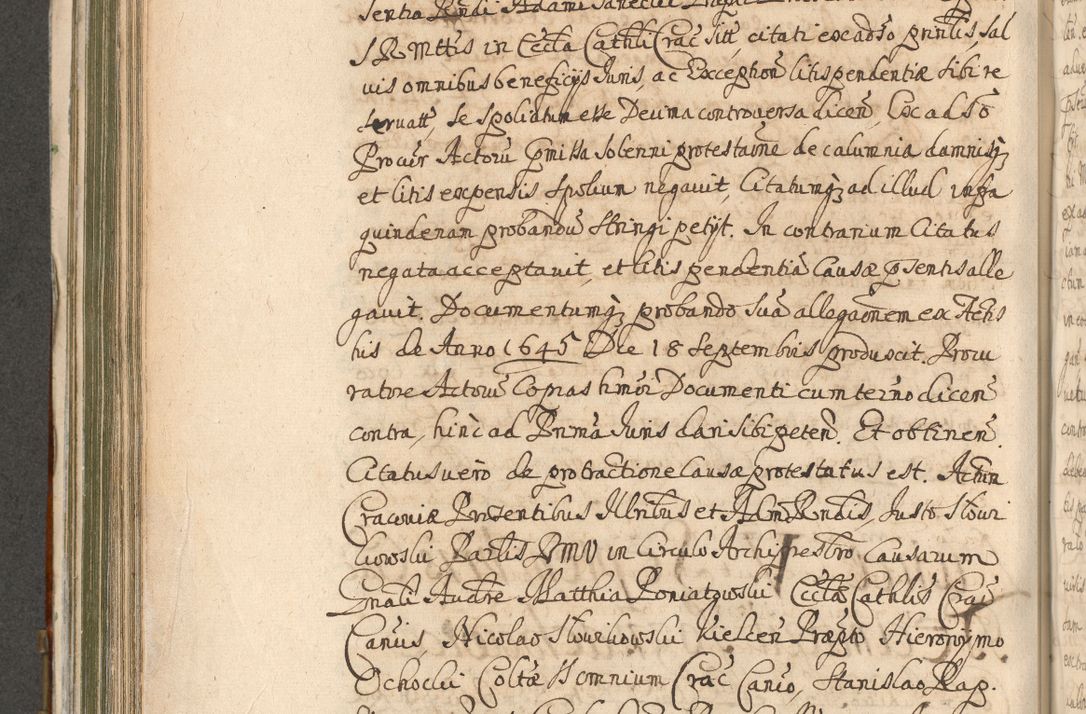 sentia Rndi Adami Sanecki
S R Mttis in Eccla Cathli Crac Sitt, citati ex adso gnrilis, sal
uis omnibus beneficijs Juris, ac Exception litis pendentiæ sibi re
seruatt, se Spoliatum esse Decima controuersa dicen, Ex adso
Procur Actorũ pmissa solenni protestaone de calumnia damnisq
et litis expensis spolium negauit, Citatumq ad illud infra
quindenam probandũ stringi petijt. In contrarium Citatus
negata acceptauit, et litis pendentiã Causæ psentis alle
gauit. Documentumq probando suã allegaonem ex Actis
his de Anno 1645 Die 18 Septembris produxit. Procu
ratore Actorũ Copias hmõi Documenti cum termõ dicen
contra, hinc ad Primã Juris dari sibi peten. Et obtinen.
Citatus uero de protractione Causæ protestatus est. Actum
Cracouiæ Præsentibus Illribus et AdmRndis, Justo Słowi
kowski Parlis BMV in Circulo Archipresbro Causarum
Gnali Audre Matthia Poniatowski Ecclæ Cathlis Crac
Canvis, Nicolao Słowikowski Kielcen Præpto Hieronymo
Ochocki Coltæ SS omnium Crac Canco, Stanislao Rap.